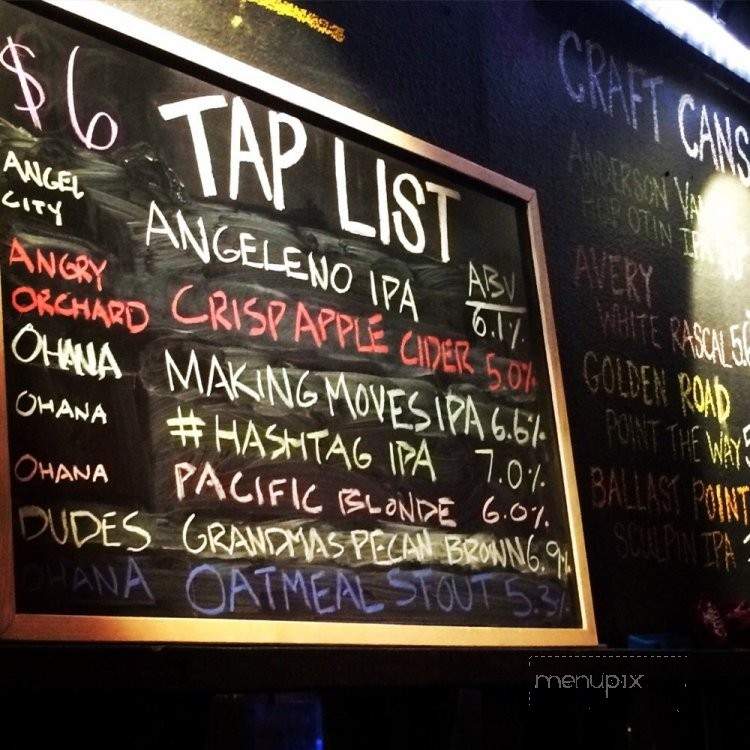 $6 TAP LIST
ABV
ANGEL CITY ANGELENO IPA 6.1%
ANGRY ORCHARD CRISP APPLE CIDER 5.0%
OHANA MAKING MOVES IPA 6.6%
OHANA #HASHTAG IPA 7.0%
OHANA PACIFIC BLONDE 6.0%
DUDES GRANDMAS PECAN BROWN 6.9%
OHANA OATMEAL STOUT 5.3%
CRAFT CANS
ANDERSON VA
HOP OTIN IPA
AVERY
WHITE RASCAL 5.6
GOLDEN ROAD
POINT THE WAY 5
BALLAST POINT
SCULPIN IPA
menupix